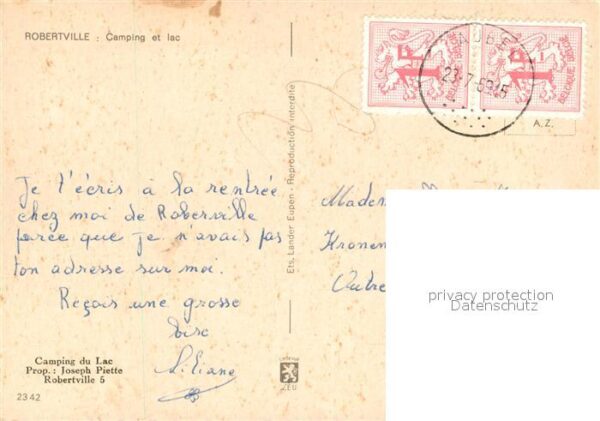 ROBERTVILLE : Camping et lac
1F
BELGIQUE BELGIE
1F
BELGIQUE BELGIE
23-7-69 15
A.Z.
Je t'écris à la rentrée
chez moi de Roberville
parce que je n'avais pas
ton adresse sur moi.
Reçois une grosse
bise
Liliane
Camping du Lac
Prop. : Joseph Piette
Robertville 5
2342
Ets. Lander Eupen - Reproduction interdite
Kronen
privacy protection
Datenschutz